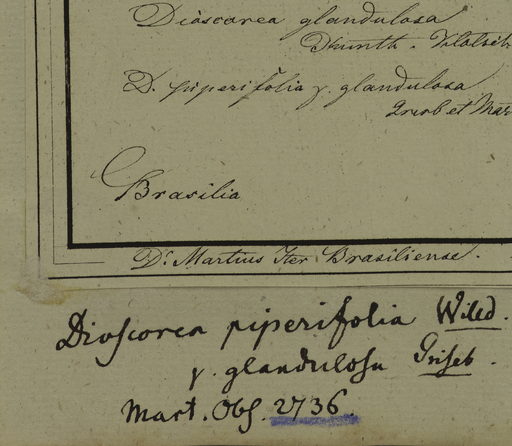 Dioscorea glandulosa
Kunth.
D. piperifolia γ. glandulosa
Griseb et Mar
Brasilia
Dr. Martius Iter Brasiliense.
Dioscorea piperifolia Willd.
γ. glandulosa Griseb.
Mart. Obs. 2736.